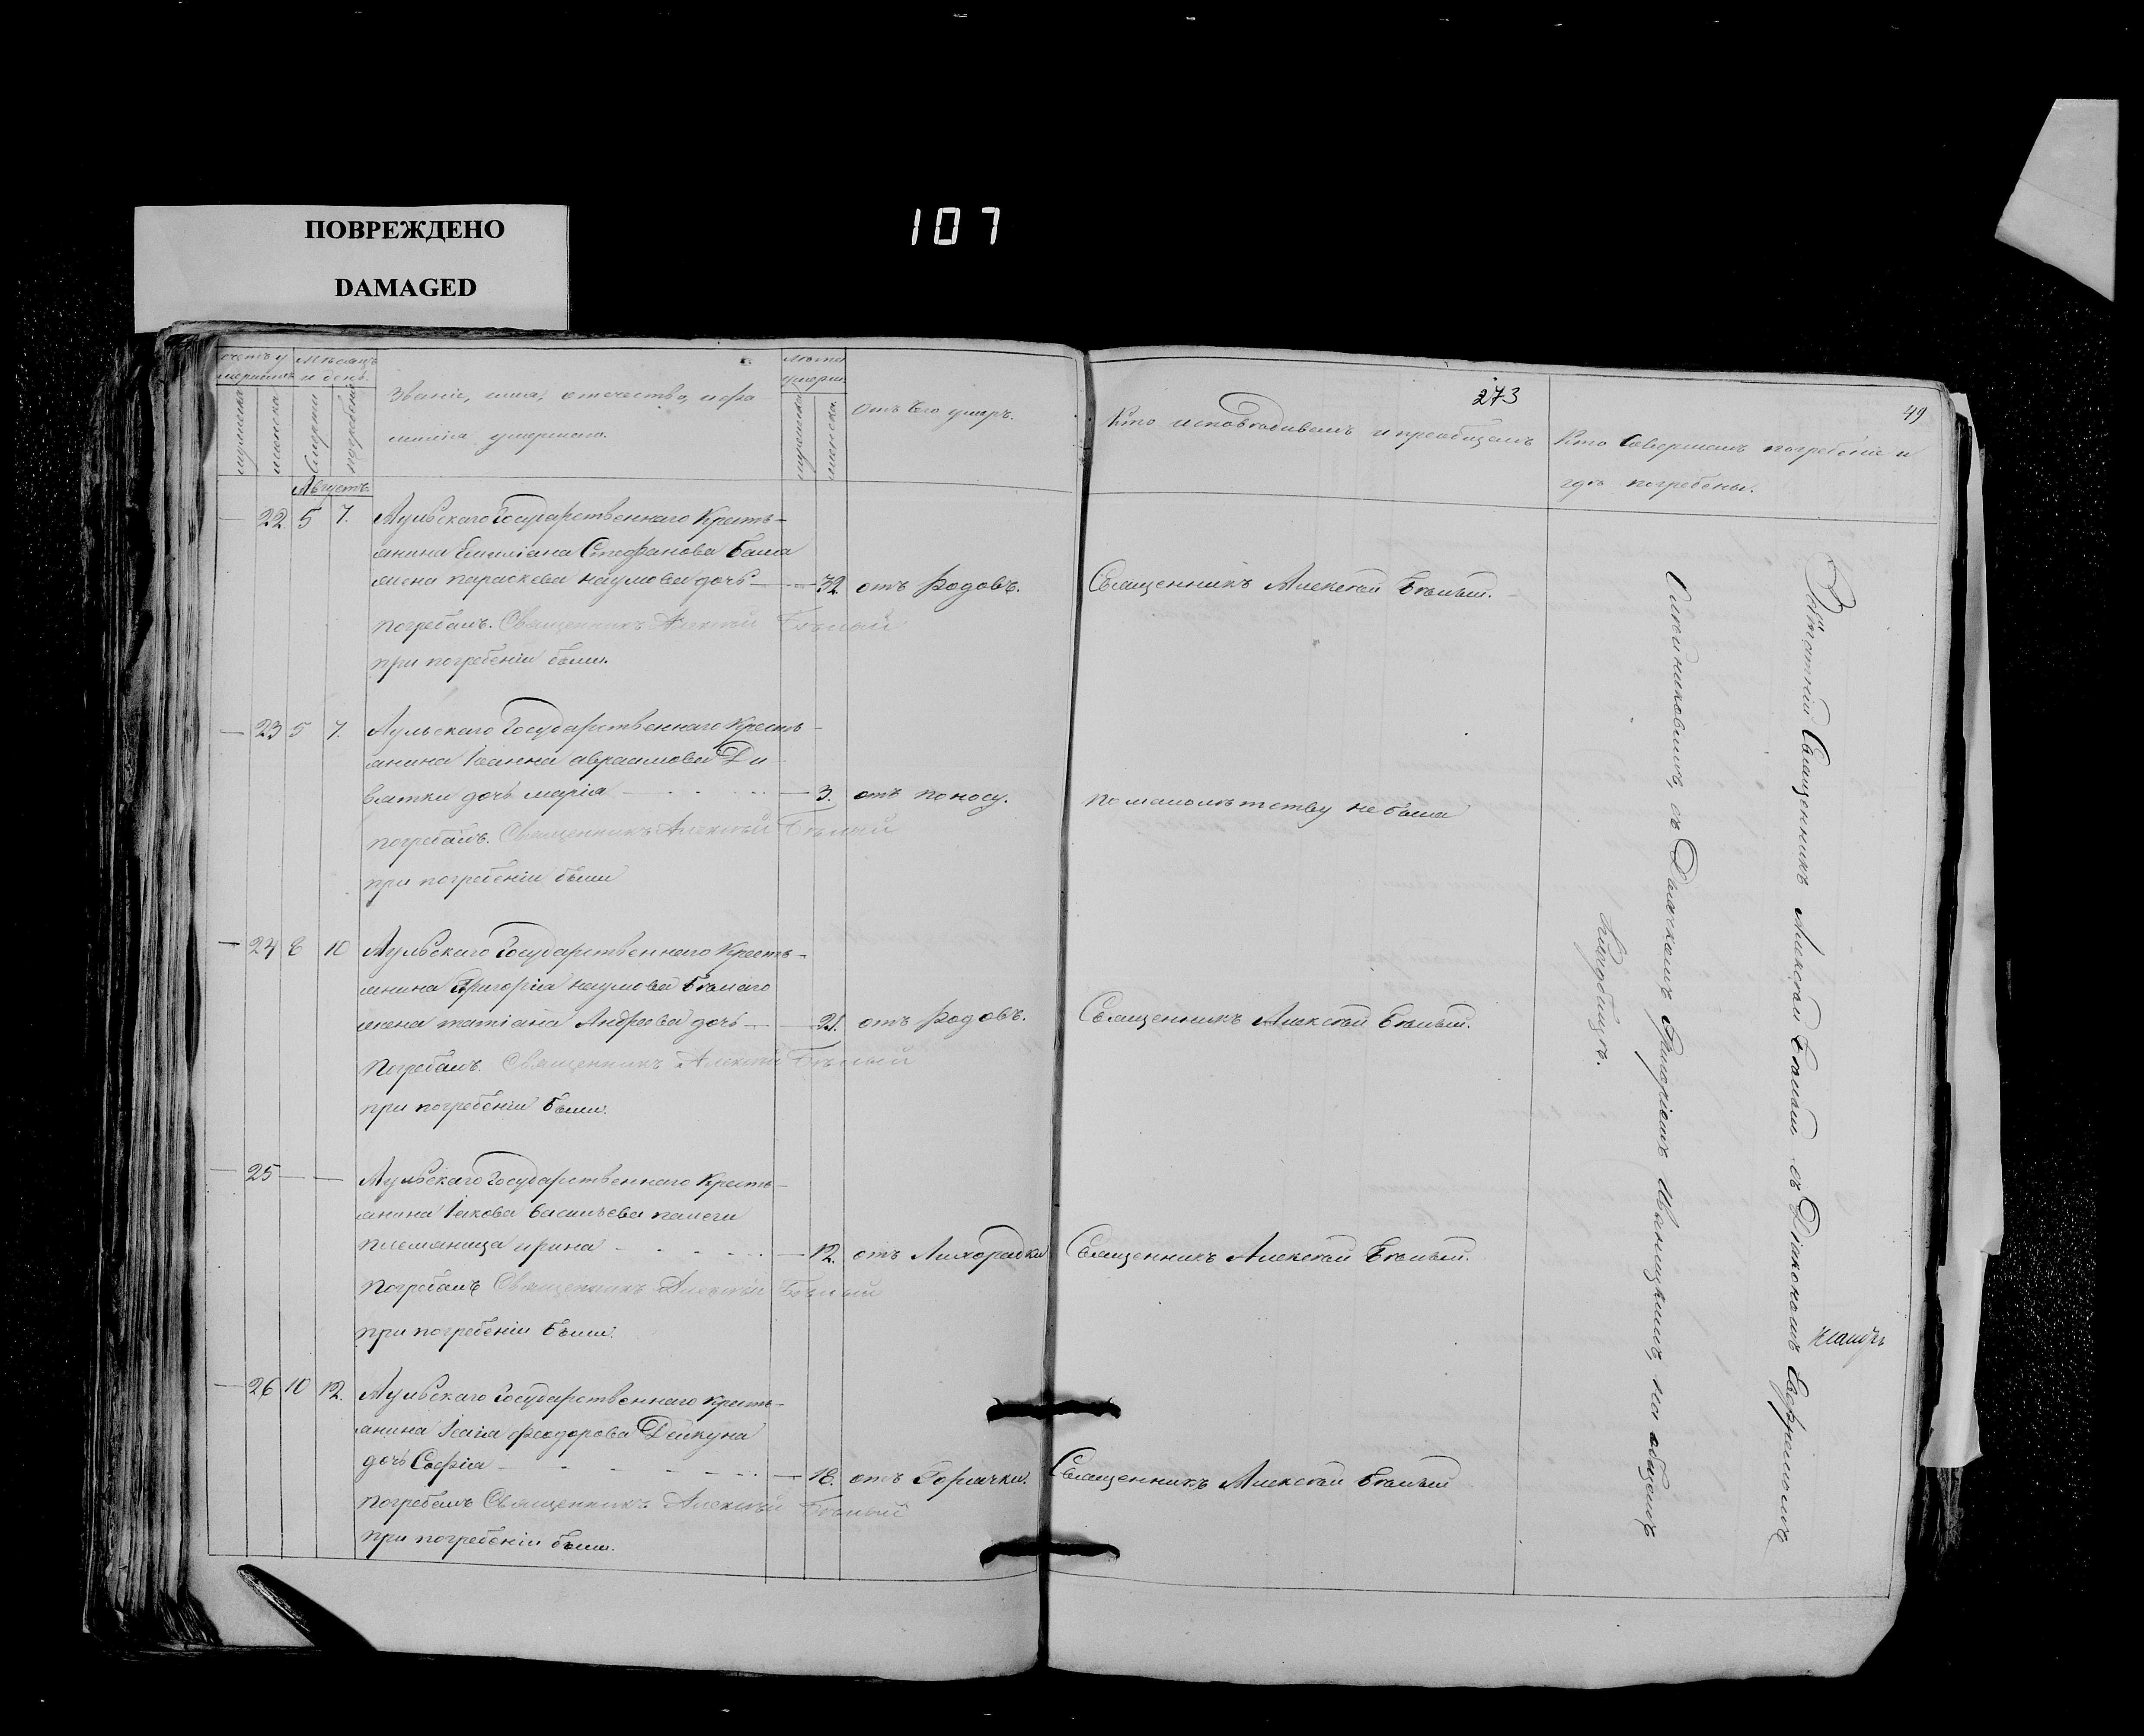 ПОВРЕЖДЕНО
DAMAGED
107
273
49
Счетъ умершихъ
Мѣсяцъ и день.
Званіе, имя, отечество, и фа
милія умершаго.
Лѣта умерш.
отъ чего умеръ.
Кто исповѣдывалъ и пріобщалъ
Кто Совершалъ погребеніе и
гдѣ погребены.
мужеска
женска
Смерти
погребенія
мужеска
женска
Августъ
— 22 5 7. Аульскаго Государственнаго Кресть-
янина Емиліана Стефанова
жена параскева наумова дочь — — 32 отъ родовъ. Священникъ Алексѣй Бѣлый.
погребалъ. Священникъ Алексѣй Бѣлый
при погребеніи были.
— 23 5 7. Аульскаго Государственнаго Кресть-
янина Іоанна авраамова
дочь марія — 3. отъ поносу. по малолѣтству не была
погребалъ. Священникъ Алексѣй Бѣлый
при погребеніи были
— 24 8 10 Аульскаго Государственнаго Кресть-
янина Григорія наумова Бѣлаго
жена татіана Андреева дочь — 21. отъ родовъ. Священникъ Алексѣй Бѣлый.
Погребалъ. Священникъ Алексѣй Бѣлый
при погребеніи были.
— 25 — — Аульскаго Государственнаго Кресть-
янина Іакова Васильева
племяница ирина — 12. отъ Лихорадки Священникъ Алексѣй Бѣлый.
Погребалъ Священникъ Алексѣй Бѣлый
при погребеніи были.
— 26 10 12. Аульскаго Государственнаго кресть-
янина Исаія феодорова Дейкуна
дочь Софія — 18. отъ Горячки. Священникъ Алексѣй Бѣлый
погребалъ Священникъ Алексѣй Бѣлый
при погребеніи были.
Священникъ Алексѣй Бѣлый съ Діакономъ
съ Дьячкомъ Григоріемъ на общемъ
Кладбищѣ.